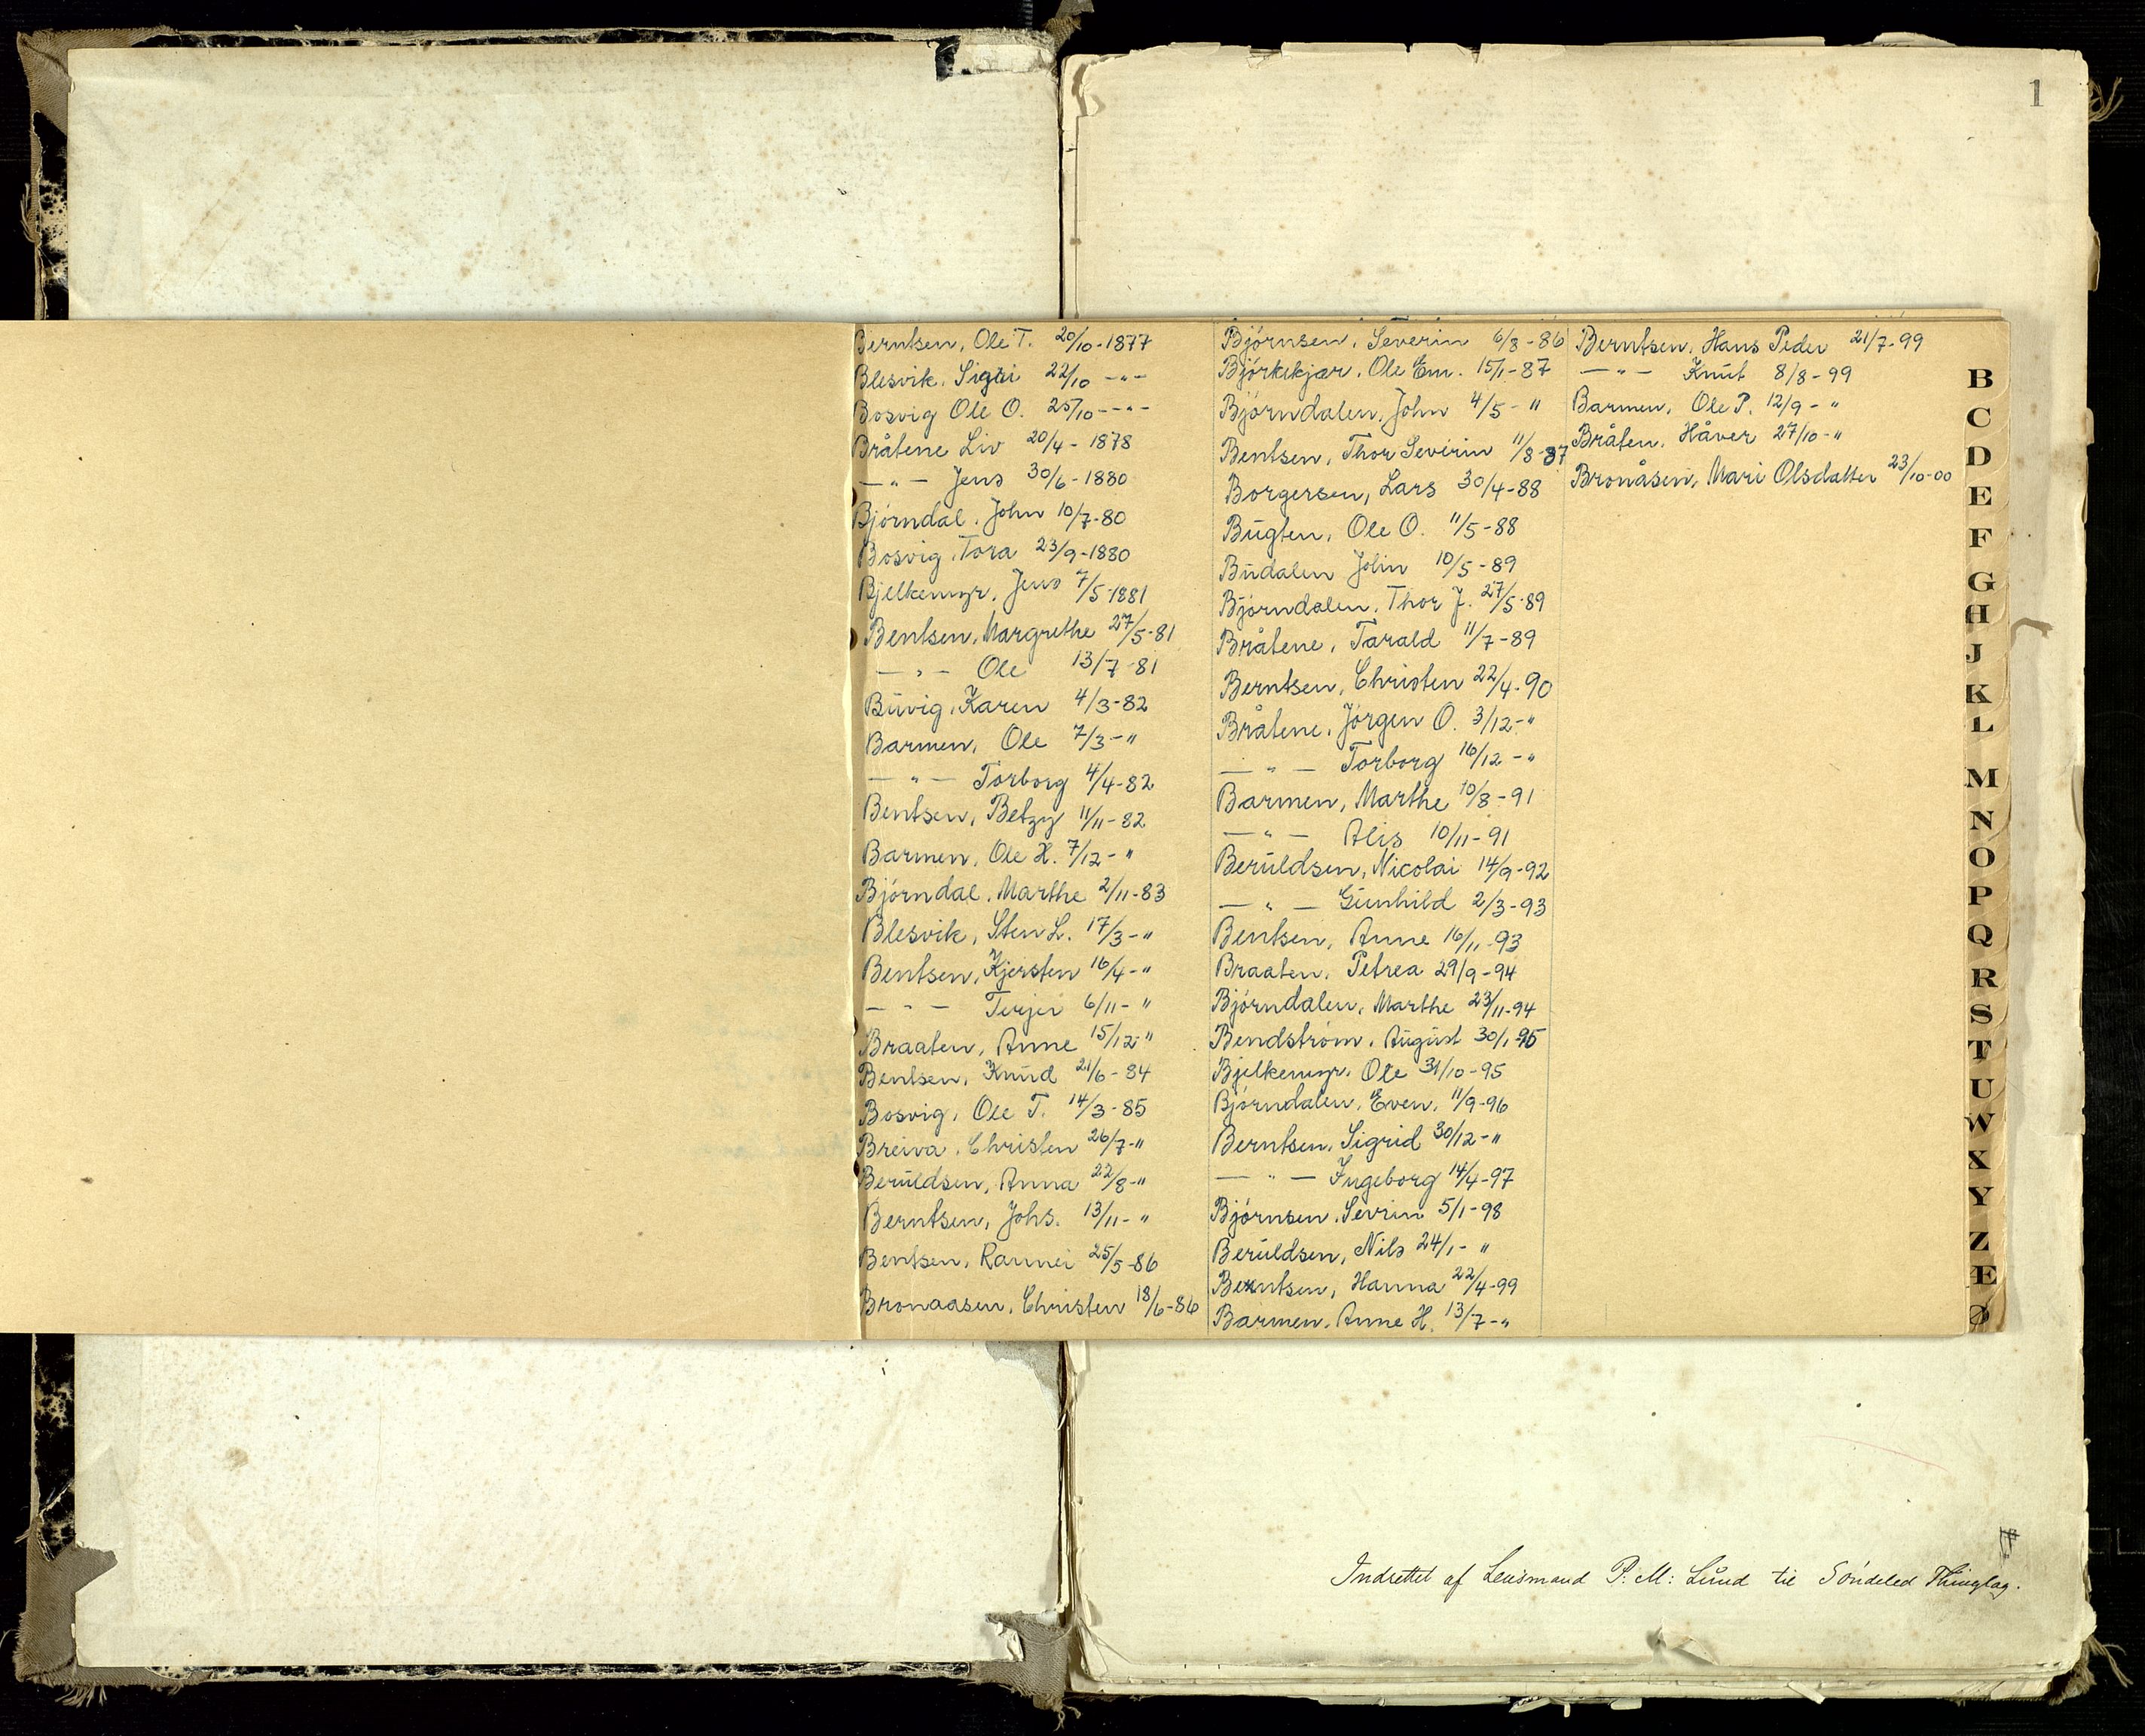 1
Berntsen, Ole T. 20/10-1877
Blesvik, Sigri 22/10 -"-
Bosvig Ole O. 25/10 --"-
Bråtene Liv 20/4 - 1878
-"- Jens 30/6 - 1880
Bjørndal, John 10/7-80
Bosvig, Tora 23/9-1880
Bjelkemyr, Jens 7/5-1881
Bentsen, Margrethe 27/5-81
-"- Ole 13/7-81
Buvig, Karen 4/3-82
Barmen, Ole 7/3-"
-"- Torborg 4/4-82
Bentsen, Betzy 11/11-82
Barmen, Ole H. 7/12-"
Bjørndal, Marthe 2/11-83
Blesvik, Sten L. 17/3-"
Bentsen, Kjersten 16/4-"
-"- Terjei 6/11-"
Braaten, Anne 15/12-"
Bentsen, Knud 21/6-84
Bosvig, Ole T. 14/3-85
Breiva, Christen 26/7-"
Beruldsen, Anna 22/8-"
Berntsen, Johs. 13/11-"
Bentsen, Rannei 25/5-86
Bronaasen, Christen 18/6-86
Bjørnsen, Severin 6/8-86
Bjørkekjær, Ole Em. 15/1-87
Bjørndalen, John 4/5-"
Bentsen, Thor Severin 11/8-87
Borgersen, Lars 30/4-88
Bugten, Ole O. 11/5-88
Budalen John 10/5-89
Bjørndalen, Thor J. 27/5-89
Bråtene, Tarald 11/7-89
Berntsen, Christen 22/4-90
Bråtene, Jørgen O. 3/12-"
-"- Torborg 16/12-"
Barmen, Marthe 10/8-91
-"- Alis 10/11-91
Beruldsen, Nicolai 14/9-92
-"- Gunhild 2/3-93
Bentsen, Anne 16/11-93
Braaten, Petrea 29/9-94
Bjørndalen, Marthe 23/11-94
Bendstrøm, August 30/1-95
Bjelkemyr, Ole 31/10-95
Bjørndalen, Even, 11/9-96
Berntsen, Sigrid 30/12-"
-"- Ingeborg 14/4-97
Bjørnsen, Sevrin 5/1-98
Beruldsen, Nils 24/1-"
Berntsen, Hanna 22/4-99
Barmen, Anne H. 13/7-"
Berntsen, Hans Peder 21/7-99
-"- Knut 8/8-99
Barmen, Ole P. 12/9-"
Bråten, Håver 27/10-"
Bronåsen, Mari Olsdatter 23/10-00
B
C
D
E
F
G
H
J
K
L
M
N
O
P
Q
R
S
T
U
W
X
Y
Z
Æ
Ø
Indrettet af Lensmand P: M: Lund til Søndeled Thinglag.